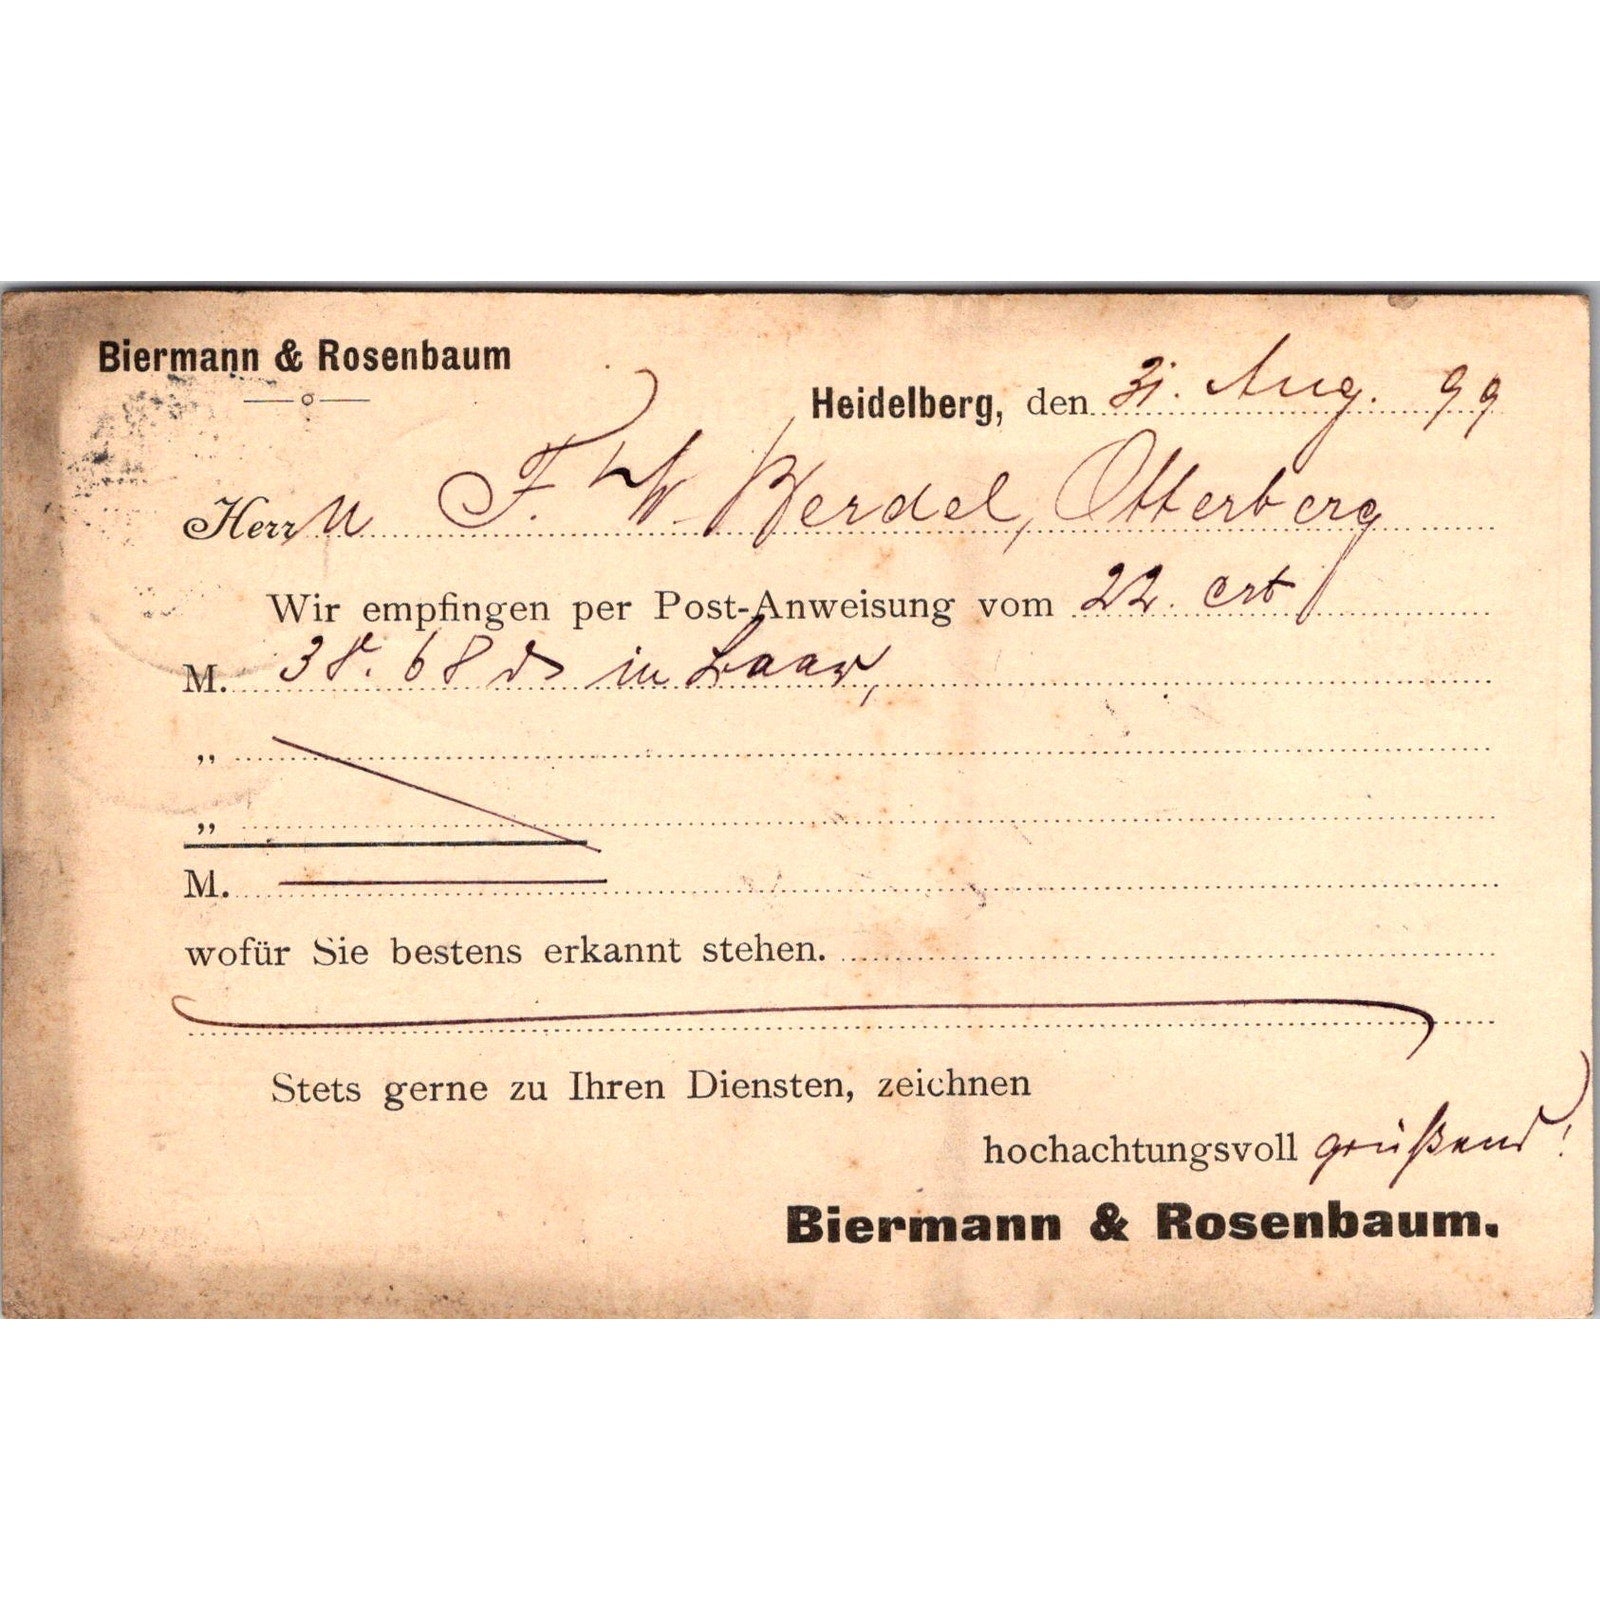 Biermann & Rosenbaum
Heidelberg, den 31. Aug. 99
Herrn F. W. Berdel, Otterberg
Wir empfingen per Post-Anweisung vom 22. crt
M. 38. 68 ₰ in baar,
„
„
M.
wofür Sie bestens erkannt stehen.
Stets gerne zu Ihren Diensten, zeichnen
hochachtungsvoll grüßend!
Biermann & Rosenbaum.